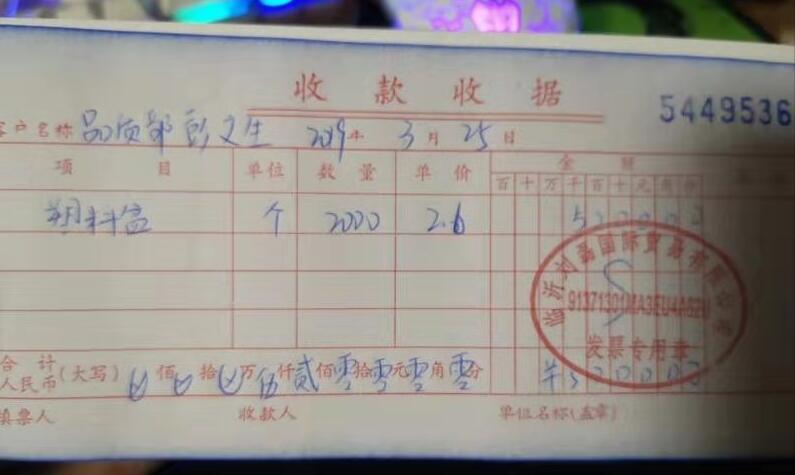 收款收据
5449536
客户名称 品质部彭文生 2019年 3月 25日
项目 单位 数量 单价 金额
百十万千百十元角分
塑料盆 个 2000 2.6 520000
临沂刘 国际贸易有限公司
发票专用章
合计人民币(大写) 佰 拾 万伍仟贰佰零拾零元零角零分 ¥520000
填票人 收款人 单位名称(盖章)